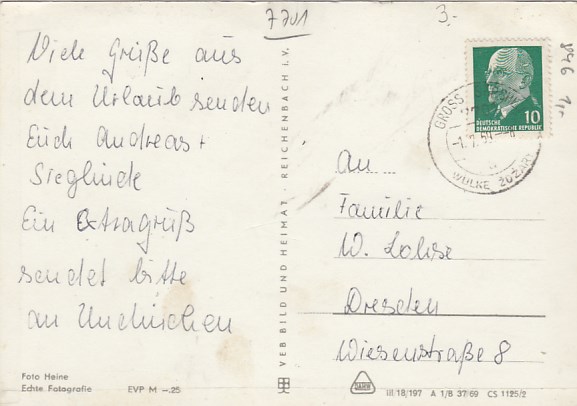 7701
3.-
846
1,-
Viele Grüße aus
dem Urlaub senden
Euch Andreas +
Sieglinde
Ein Extragruß
sendet bitte
an
VEB BILD UND HEIMAT · REICHENBACH i. V.
10
DEUTSCHE
DEMOKRATISCHE REPUBLIK
GROSS
WULKE ZDŹARY
An
Familie
W. Lohse
Dresden
Wiesenstraße 8
Foto Heine
Echte Fotografie EVP M –.25
DAHW
III/18/197 A 1/B 37/69 CS 1125/2